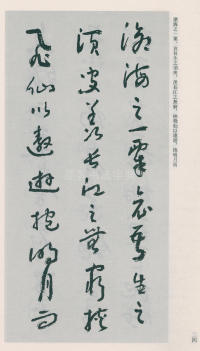 滄海之一粟。哀吾生之須臾,羨長江之無窮。挾飛仙以遨遊,抱明月而
滄海之一粟哀吾生之
須臾羨長江之無窮挾
飛仙以遨遊抱明月而